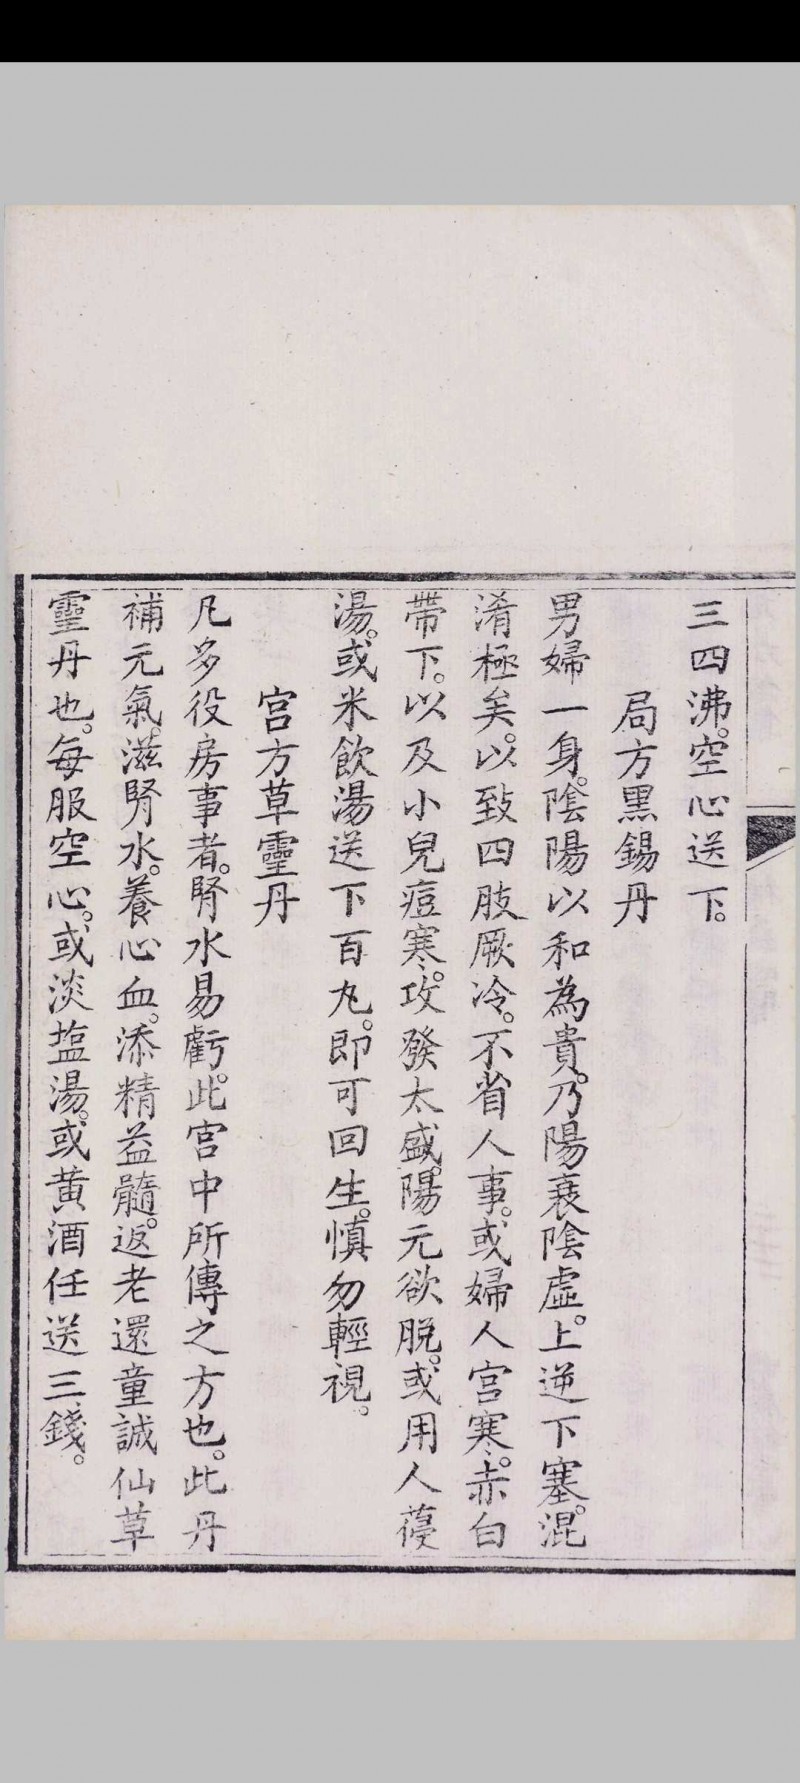 三四沸。空心送下。
局方黑錫丹
男婦一身。陰陽以和為貴。乃陽衰陰虛。上逆下塞。混
淆極矣。以致四肢厥冷。不省人事。或婦人宮寒。赤白
帶下。以及小兒痘寒。攻發太盛。陽元欲脫。或用人蓡
湯。或米飲湯送下百丸。即可回生。慎勿輕視。
宮方草靈丹
凡多役房事者。腎水易虧。此宮中所傳之方也。此丹
補元氣。滋腎水。養心血。添精益髓。返老還童誠仙草
靈丹也。每服空心。或淡塩湯。或黄酒任送三錢。